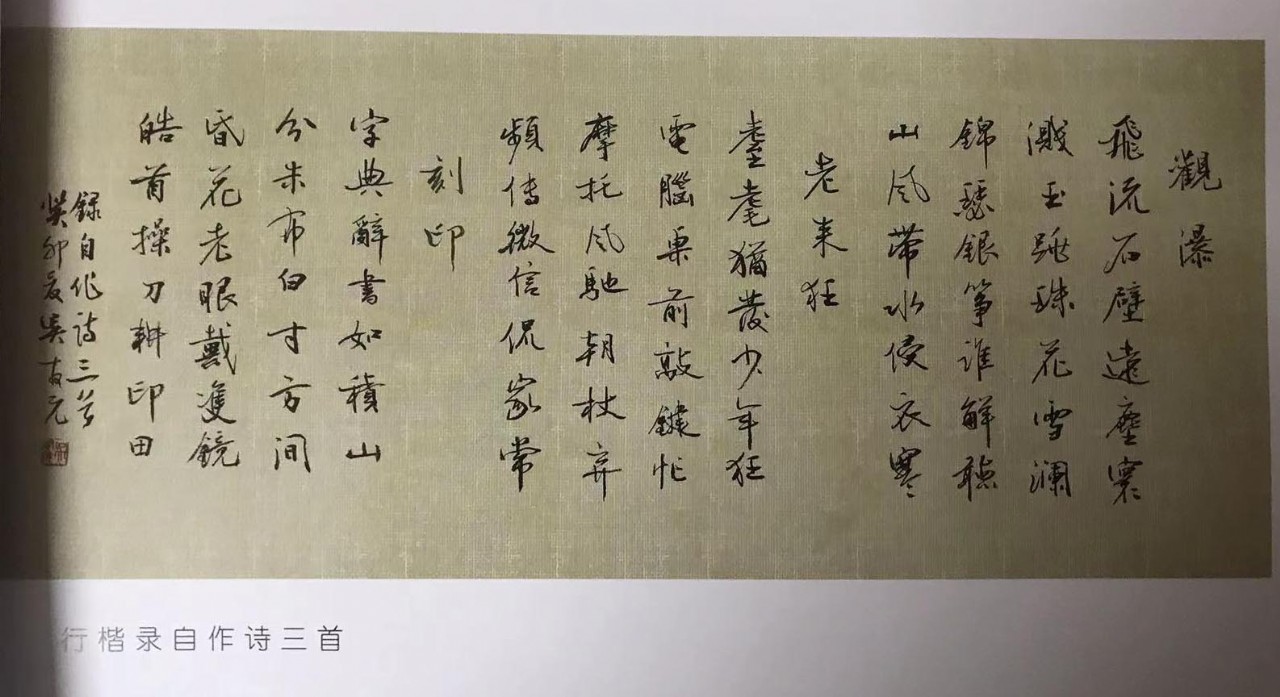 觀瀑
飛流石壁遠塵寰
濺玉跳珠花雪瀾
錦瑟銀箏誰解聽
山風帶水侵衣寒
老来狂
耋耄猶發少年狂
電腦桌前敲鍵忙
摩托风馳朝杖弃
頻傳微信侃家常
刻印
字典辭書如積山
分朱布白寸方间
昏花老眼戴雙鏡
皓首操刀耕印田
録自作诗三首
癸卯夏吴友元
行楷录自作诗三首